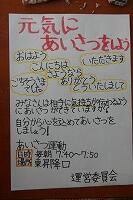 元気に
あいさつをしよう
おはよう
いただきます
こんにちは
さようなら
ごちそうさまでした
ありがとう
どういたしまして
みなさんは相手に気持ちが伝わるようにあいさつができていますか?
自分から心を込めてあいさつをしましょう!
あいさつ運動
日時 毎朝 7:40～7:50
場所 東昇降口
運営委員会